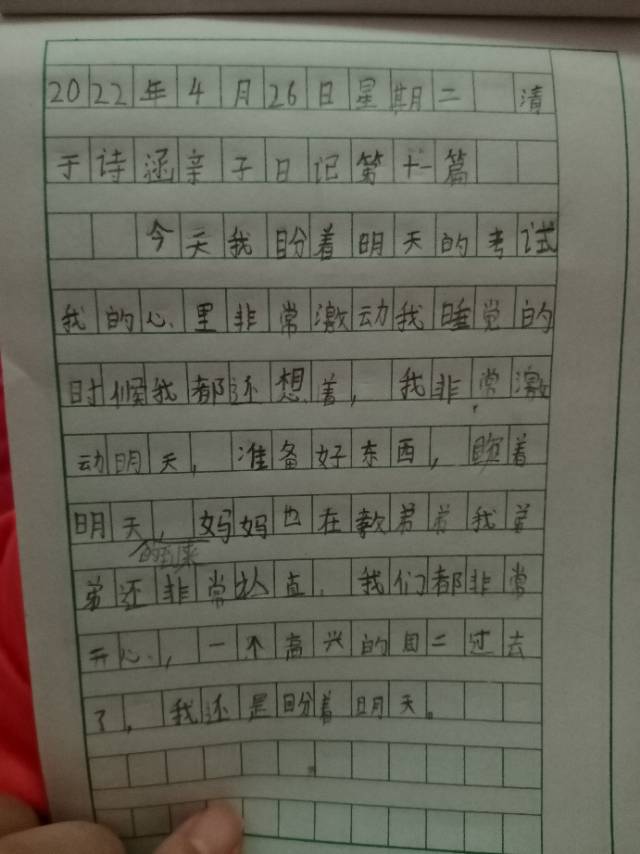 2022年4月26日星期二 清
于诗涵亲子日记第十一篇
今天我盼着明天的考试
我的心里非常激动我睡觉的
时候我都还想着，我非常激
动明天，准备好东西，盼着
明天，妈妈也在教弟弟我弟
的到来
弟还非常认真，我们都非常
开心，一个高兴的周二过去
了，我还是盼着明天。